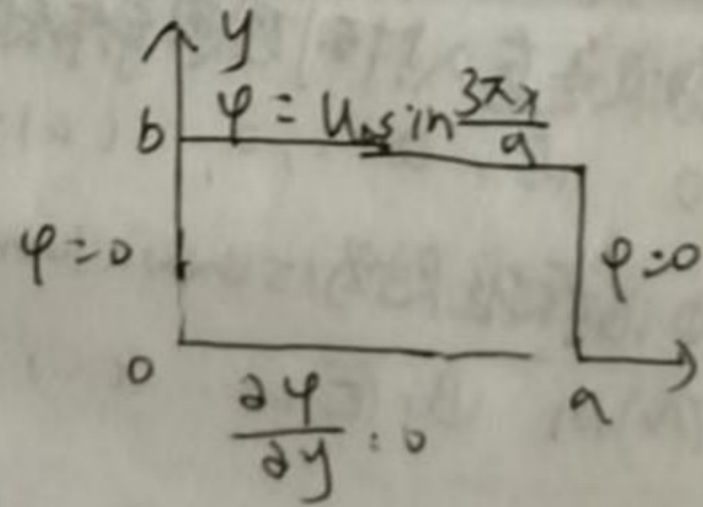 y
b φ = U₀ sin 3πx/a
φ=0 φ=0
0 a
∂φ/∂y = 0